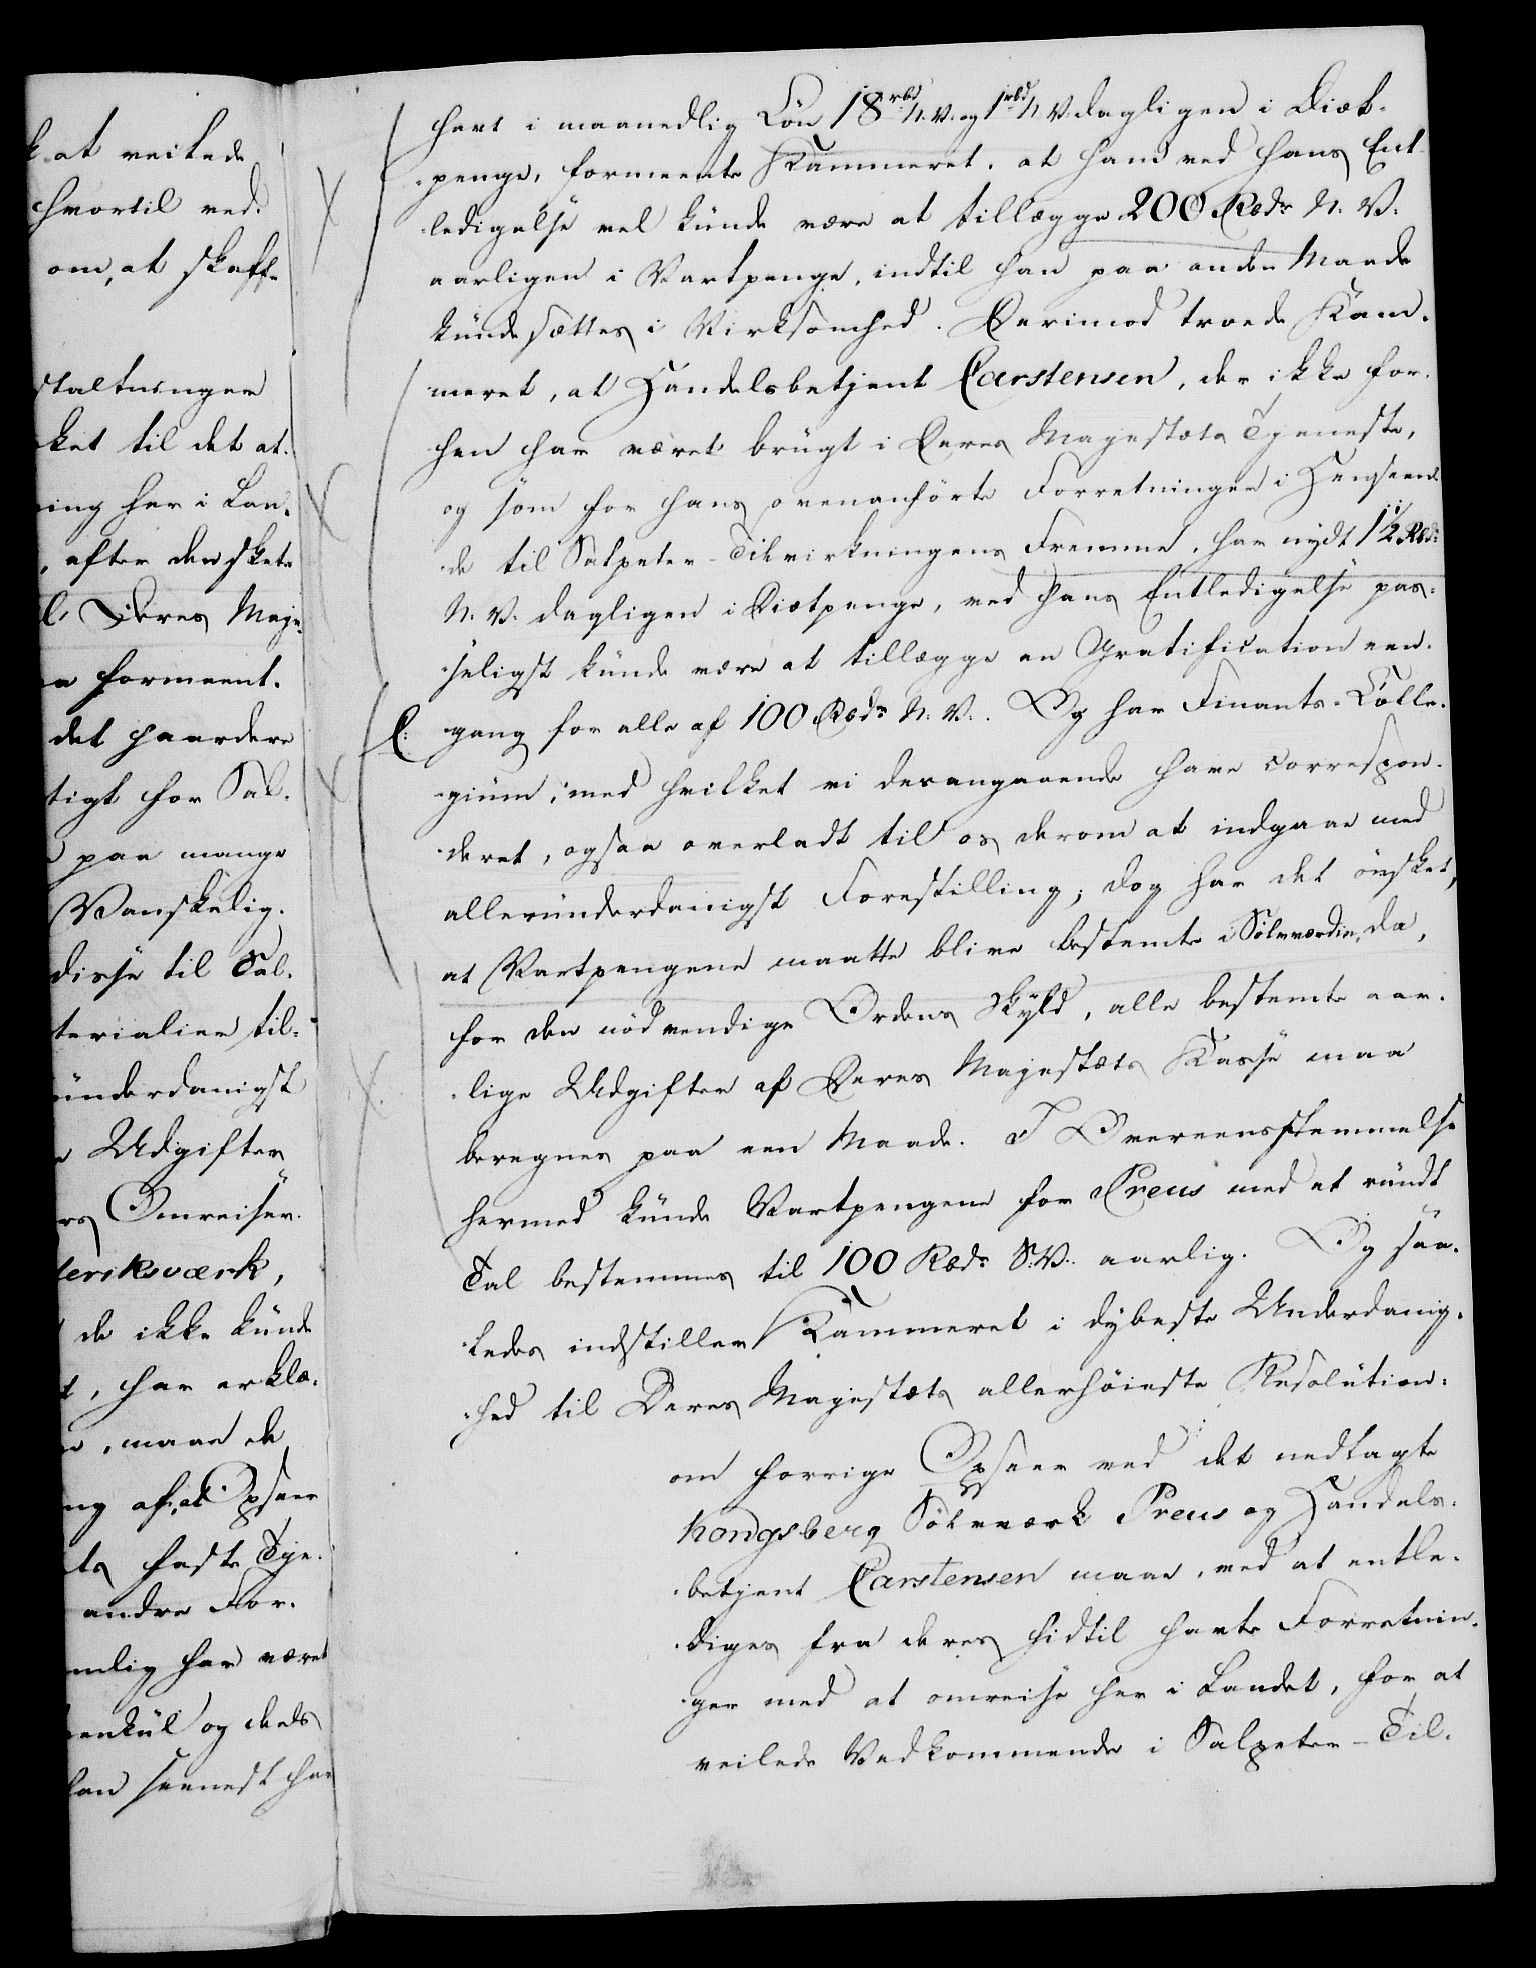 k at veilede
hvortil ved.
om, at skaffe
staltninger
ket til det at.
ning her i Lan.
, efter den skete
l Deres Maje.
a formeent.
det haardere
tigt for Sal.
paa mange
Vanskelig.
disse til Sal.
terialier til.
underdanigst
e Udgifter
rs Omreiser.
deriksværk,
de ikke kunde
t, har erklæ.
e, maae de
ng af, at Opseer
ts faste Tje.
andre For.
mlig har været
enkül og deels
han seenest har
havt i maanedlig Løn 18 rbd N. V. og 1 rbd N. V. dagligen i Diæt-
penge, formeente Kammeret, at ham ved hans Ent
ledigelse vel kunde være at tillægge 200 Rbdr N. V.
aarligen i Vartpenge, indtil han paa anden Maade
kunde sættes i Virksomhed. Derimod troede Kam.
meret, at Handelsbetjent Carstensen, der ikke for.
hen har været brugt i Deres Majestæts Tjeneste,
og som for hans ovenanførte Forretninger i Henseen
de til Salpeter-Tilvirkningens Fremme, har nydt 1½ Rbdr
N. V. dagligen i Diætpenge, ved hans Entledigelse pas-
seligst kunde være at tillægge en Gratification een.
gang for alle af 100 Rbdr N. V. Og har Finants-Colle.
gium, med hvilket vi desangaaende have correspon.
deret, ogsaa overladt til os derom at indgaae med
allerunderdanigst Forestilling; dog har det ønsket,
at Vartpengene maatte blive bestemte i Sølvværdie, da,
for den nødvendige Ordens Skyld, alle bestemte aar.
lige Udgifter af Deres Majestæts Kasse maa
beregnes paa een Maade. I Overeensstemmelse
hermed kunde Vartpengene for Preus med et rundt
Tal bestemmes til 100 Rbdr S. V. aarlig. Og saa.
ledes indstiller Kammeret i dybeste Underdanig.
hed til Deres Majestæts allerhøieste Resolution:
om forrige Opseer ved det nedlagte
Kongsberg Sølvværk Preus og Handels.
betjent Carstensen maae, ved at entle.
diges fra deres hidtil havte Forretnin.
ger med at omreise her i Landet, for at
veilede Vedkommende i Salpeter-Til.